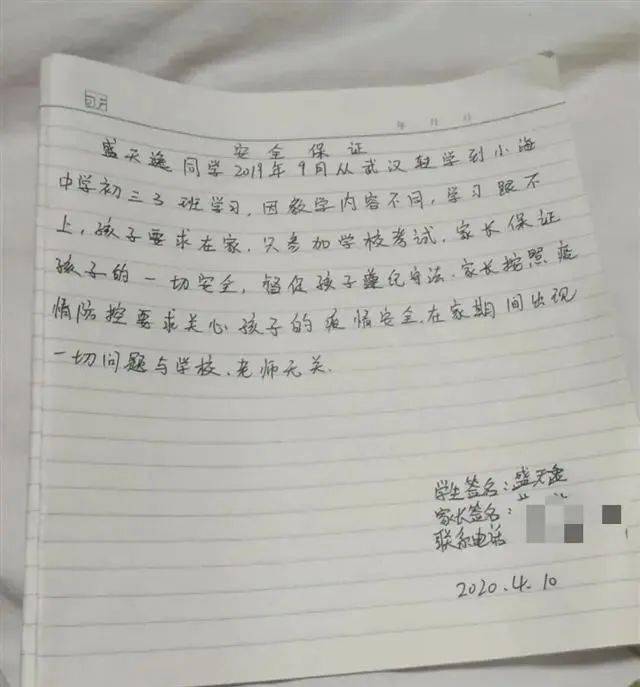 年 月 日
安全保证
盛天逸同学2019年9月从武汉转学到小海
中学初三3班学习，因教学内容不同，学习跟不
上，孩子要求在家，只参加学校考试，家长保证
孩子的一切安全，督促孩子遵纪守法，家长按照疫
情防控要求关心孩子的疫情安全，在家期间出现
一切问题与学校、老师无关.
学生签名：盛天逸
家长签名：
联系电话
2020.4.10